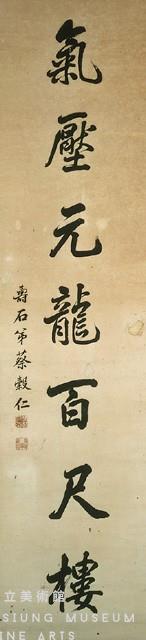 氣壓元龍百尺樓
壽石弟蔡穀仁
立美術館
SIUNG MUSEUM
INE ARTS